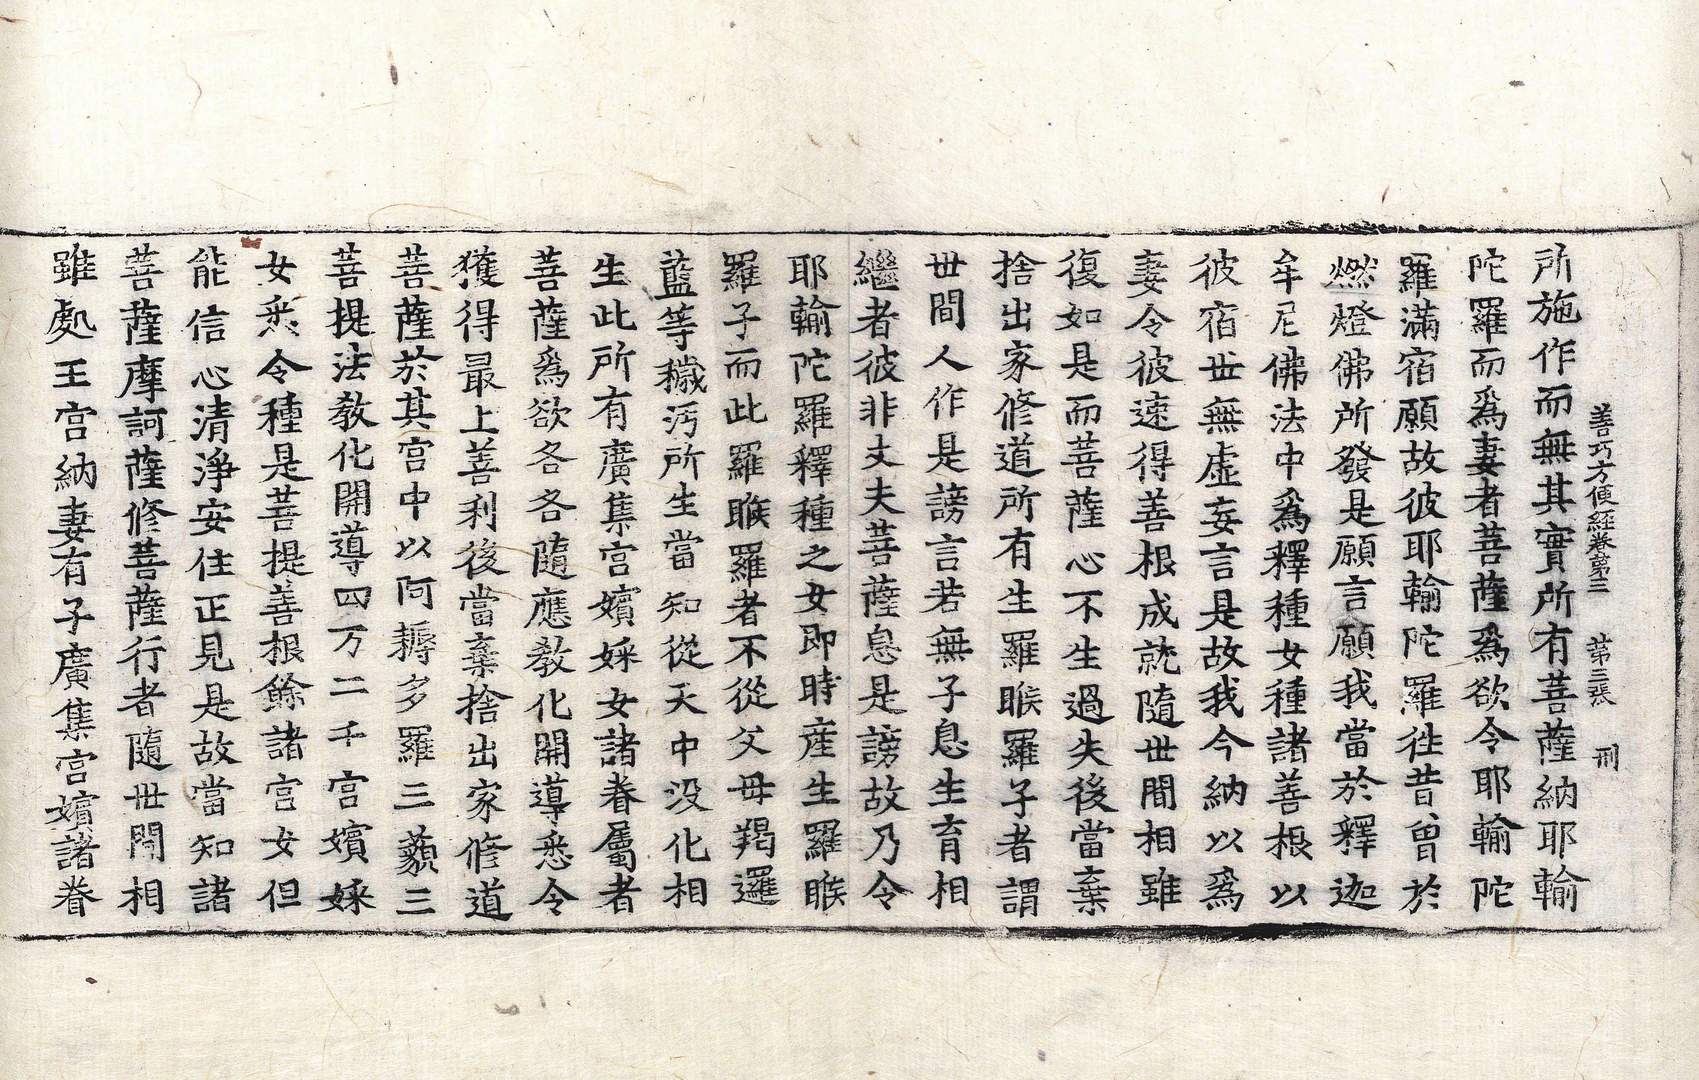 善巧方便經卷第三　第三張　刑
所施作而無其實所有菩薩納耶輸
陀羅而爲妻者菩薩爲欲令耶輸陀
羅滿宿願故彼耶輸陀羅徃昔曾於
燃燈佛所發是願言願我當於釋迦
牟尼佛法中爲釋種女種諸善根以
彼宿丗無虛妄言是故我今納以爲
妻令彼速得善根成就隨丗間相雖
復如是而菩薩心不生過失後當棄
捨出家修道所有生羅睺羅子者謂
丗間人作是謗言若無子息生育相
繼者彼非丈夫菩薩息是謗故乃令
耶輸陀羅釋種之女即時產生羅睺
羅子而此羅睺羅者不從父母羯邏
藍等穢污所生當知從天中没化相
生此所有廣集宮嬪婇女諸眷屬者
菩薩爲欲各各隨應教化開導悉令
獲得最上善利後當棄捨出家修道
菩薩於其宮中以阿耨多羅三藐三
菩提法教化開導四万二千宮嬪婇
女悉令種是菩提善根餘諸宮女但
能信心清淨安住正見是故當知諸
菩薩摩訶薩修菩薩行者隨丗間相
雖處王宮納妻有子廣集宮嬪諸眷